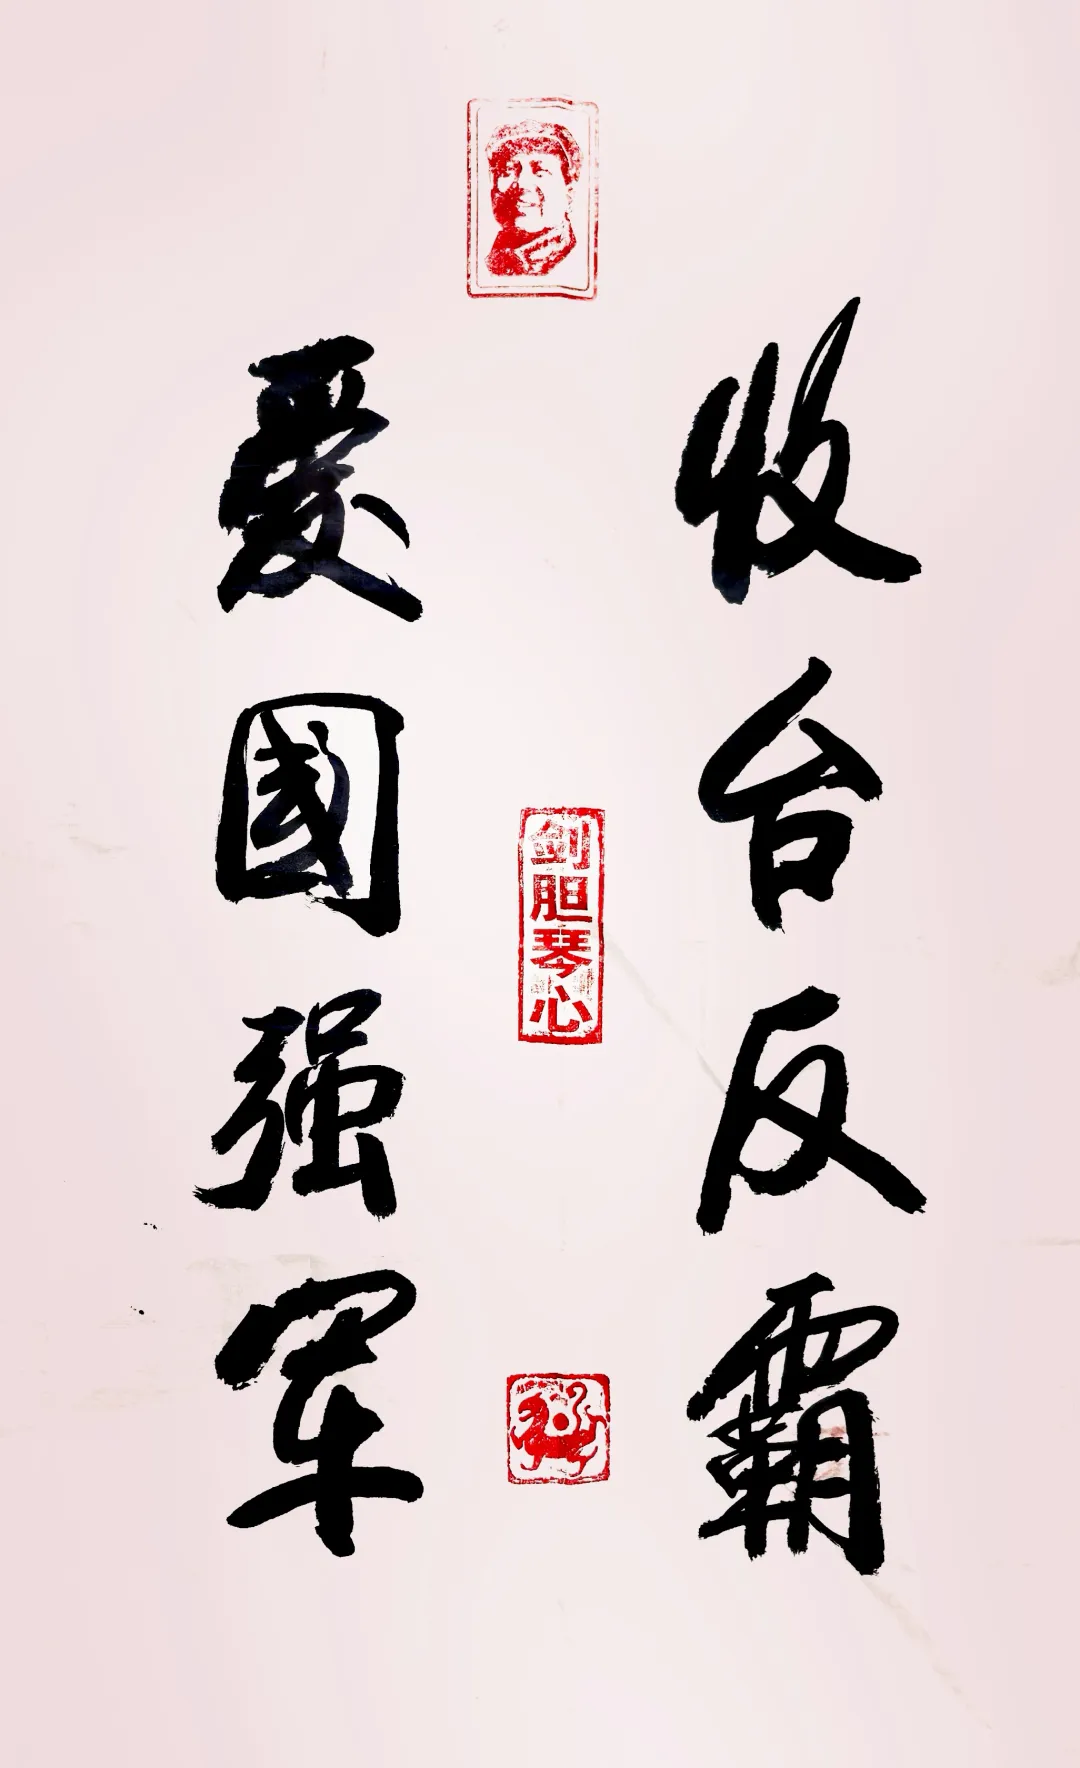 收台反霸
剑胆琴心
爱國强军